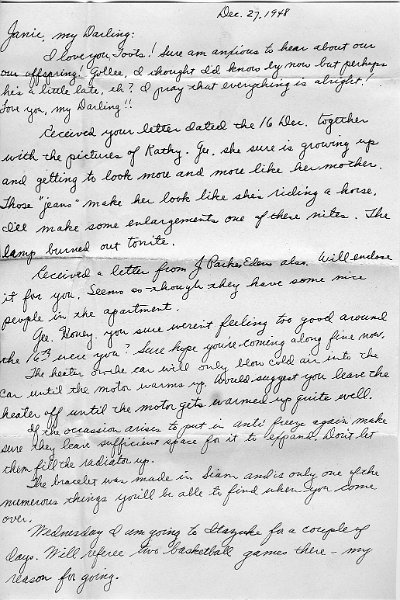 Dec. 27, 1948
Janie, my Darling:
I love you, Toots! Sure am anxious to hear about our
our offspring! Gollee, I thought I'd know by now but perhaps
he's a little late, eh? I pray that everything is alright!
Love you, my Darling!!
Received your letter dated the 16 Dec. together
with the pictures of Kathy. Gee, she sure is growing up
and getting to look more and more like her mother.
Those "jeans" make her look like she's riding a horse.
I'll make some enlargements one of these nites. The
lamp burned out tonite.
Received a letter from J Parker also. Will enclose
it for you. Seems as though they have some nice
people in the apartment.
Gee, Honey, you sure weren't feeling too good around
the 16th were you? Sure hope you're coming along fine now.
The heater in the car will only blow cold air into the
car until the motor warms up. Would suggest you leave the
heater off until the motor gets warmed up quite well.
If the occassion arises to put in anti freeze again make
sure they leave sufficient space for it to expand. Don't let
them fill the radiator up.
The bracelet was made in Siam and is only one of the
numerous things you'll be able to find when you come
over.
Wednesday I am going to Itazuke for a couple of
days. Will referee two basketball games there - my
reason for going.